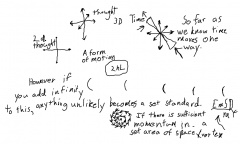 thought
3D
Time
So far as
we know time
moves one
way.
2nd
thought
A form
of motion
2AL
However if
you add infinity
to this, anything unlikely becomes a set standard.
If there is sufficient
momentum in a
set area of space